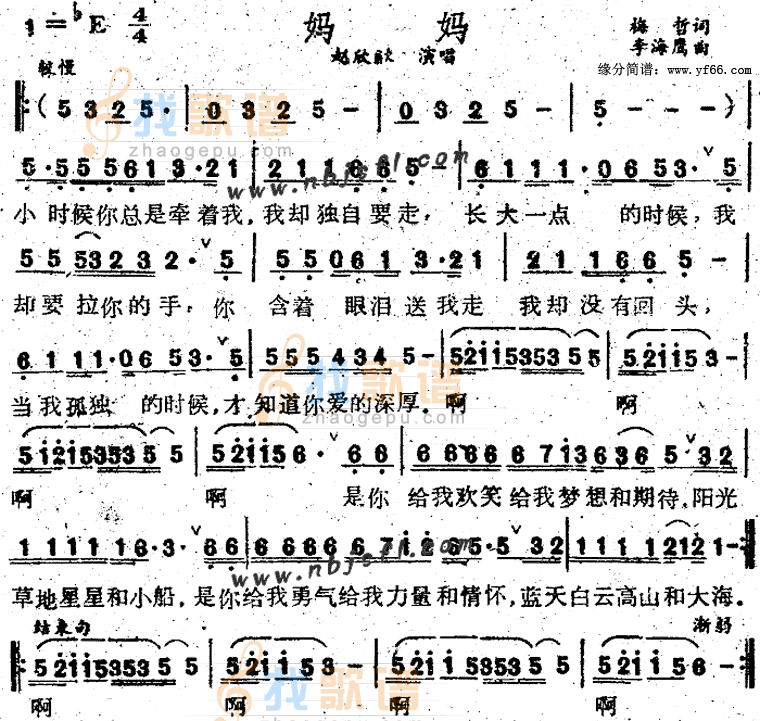 1=♭E 4/4
妈 妈
梅 哲词
赵欣歆 演唱
李海鹰曲
缘分简谱：www.yf66.com
较慢
(5 3 2 5· | 0 3 2 5 - | 0 3 2 5 - | 5 - - -)
找歌谱
zhaogepu.com
www.nbjssl.com
5·5 5 5 6 1 3·2 1 | 2 1 1 1 6 6 5 - | 6 1 1 1·0 6 5 3· ∨ 5
小时候你总是牵着我，我却独自要走，长大一点 的时候，我
5 5 5 3 2 3 2· ∨ 5 | 5 5 0 6 1 3·2 1 | 2 1 1 6 6 5 -
却要拉你的手，你 含着 眼泪送我走 我却没有回头，
6 1 1 1·0 6 5 3· ∨ 5 | 5 5 5 4 3 4 5 - | 5 2 1 1 5 3 5 3 5 5 5 | 5 2 1 1 5 3 -
当我孤独 的时候，才知道你爱的深厚。啊 啊
找歌谱
zhaogepu.com
5 1 2 1 5 3 5 3 5 5 5 | 5 2 1 1 5 6· ∨ 6 6 | 6 6 6 6 6 7 1 3 6 3 6 5 ∨ 3 2
啊 啊 是你 给我欢笑给我梦想和期待，阳光
1 1 1 1 1 1 6·3· ∨ 6 6 | 6 6 6 6 6 7 1 2 6 5·5 ∨ 3 2 | 1 1 1 1 1 2 1 2 1 -
www.nbjssl.com
草地星星和小船，是你给我勇气给我力量和情怀，蓝天白云高山和大海。
结束句 渐弱
5 2 1 1 5 3 5 3 5 5 5 | 5 2 1 1 5 3 - | 5 2 1 1 5 3 5 3 5 5 5 | 5 2 1 1 6 -
啊 啊 啊 啊
找歌谱